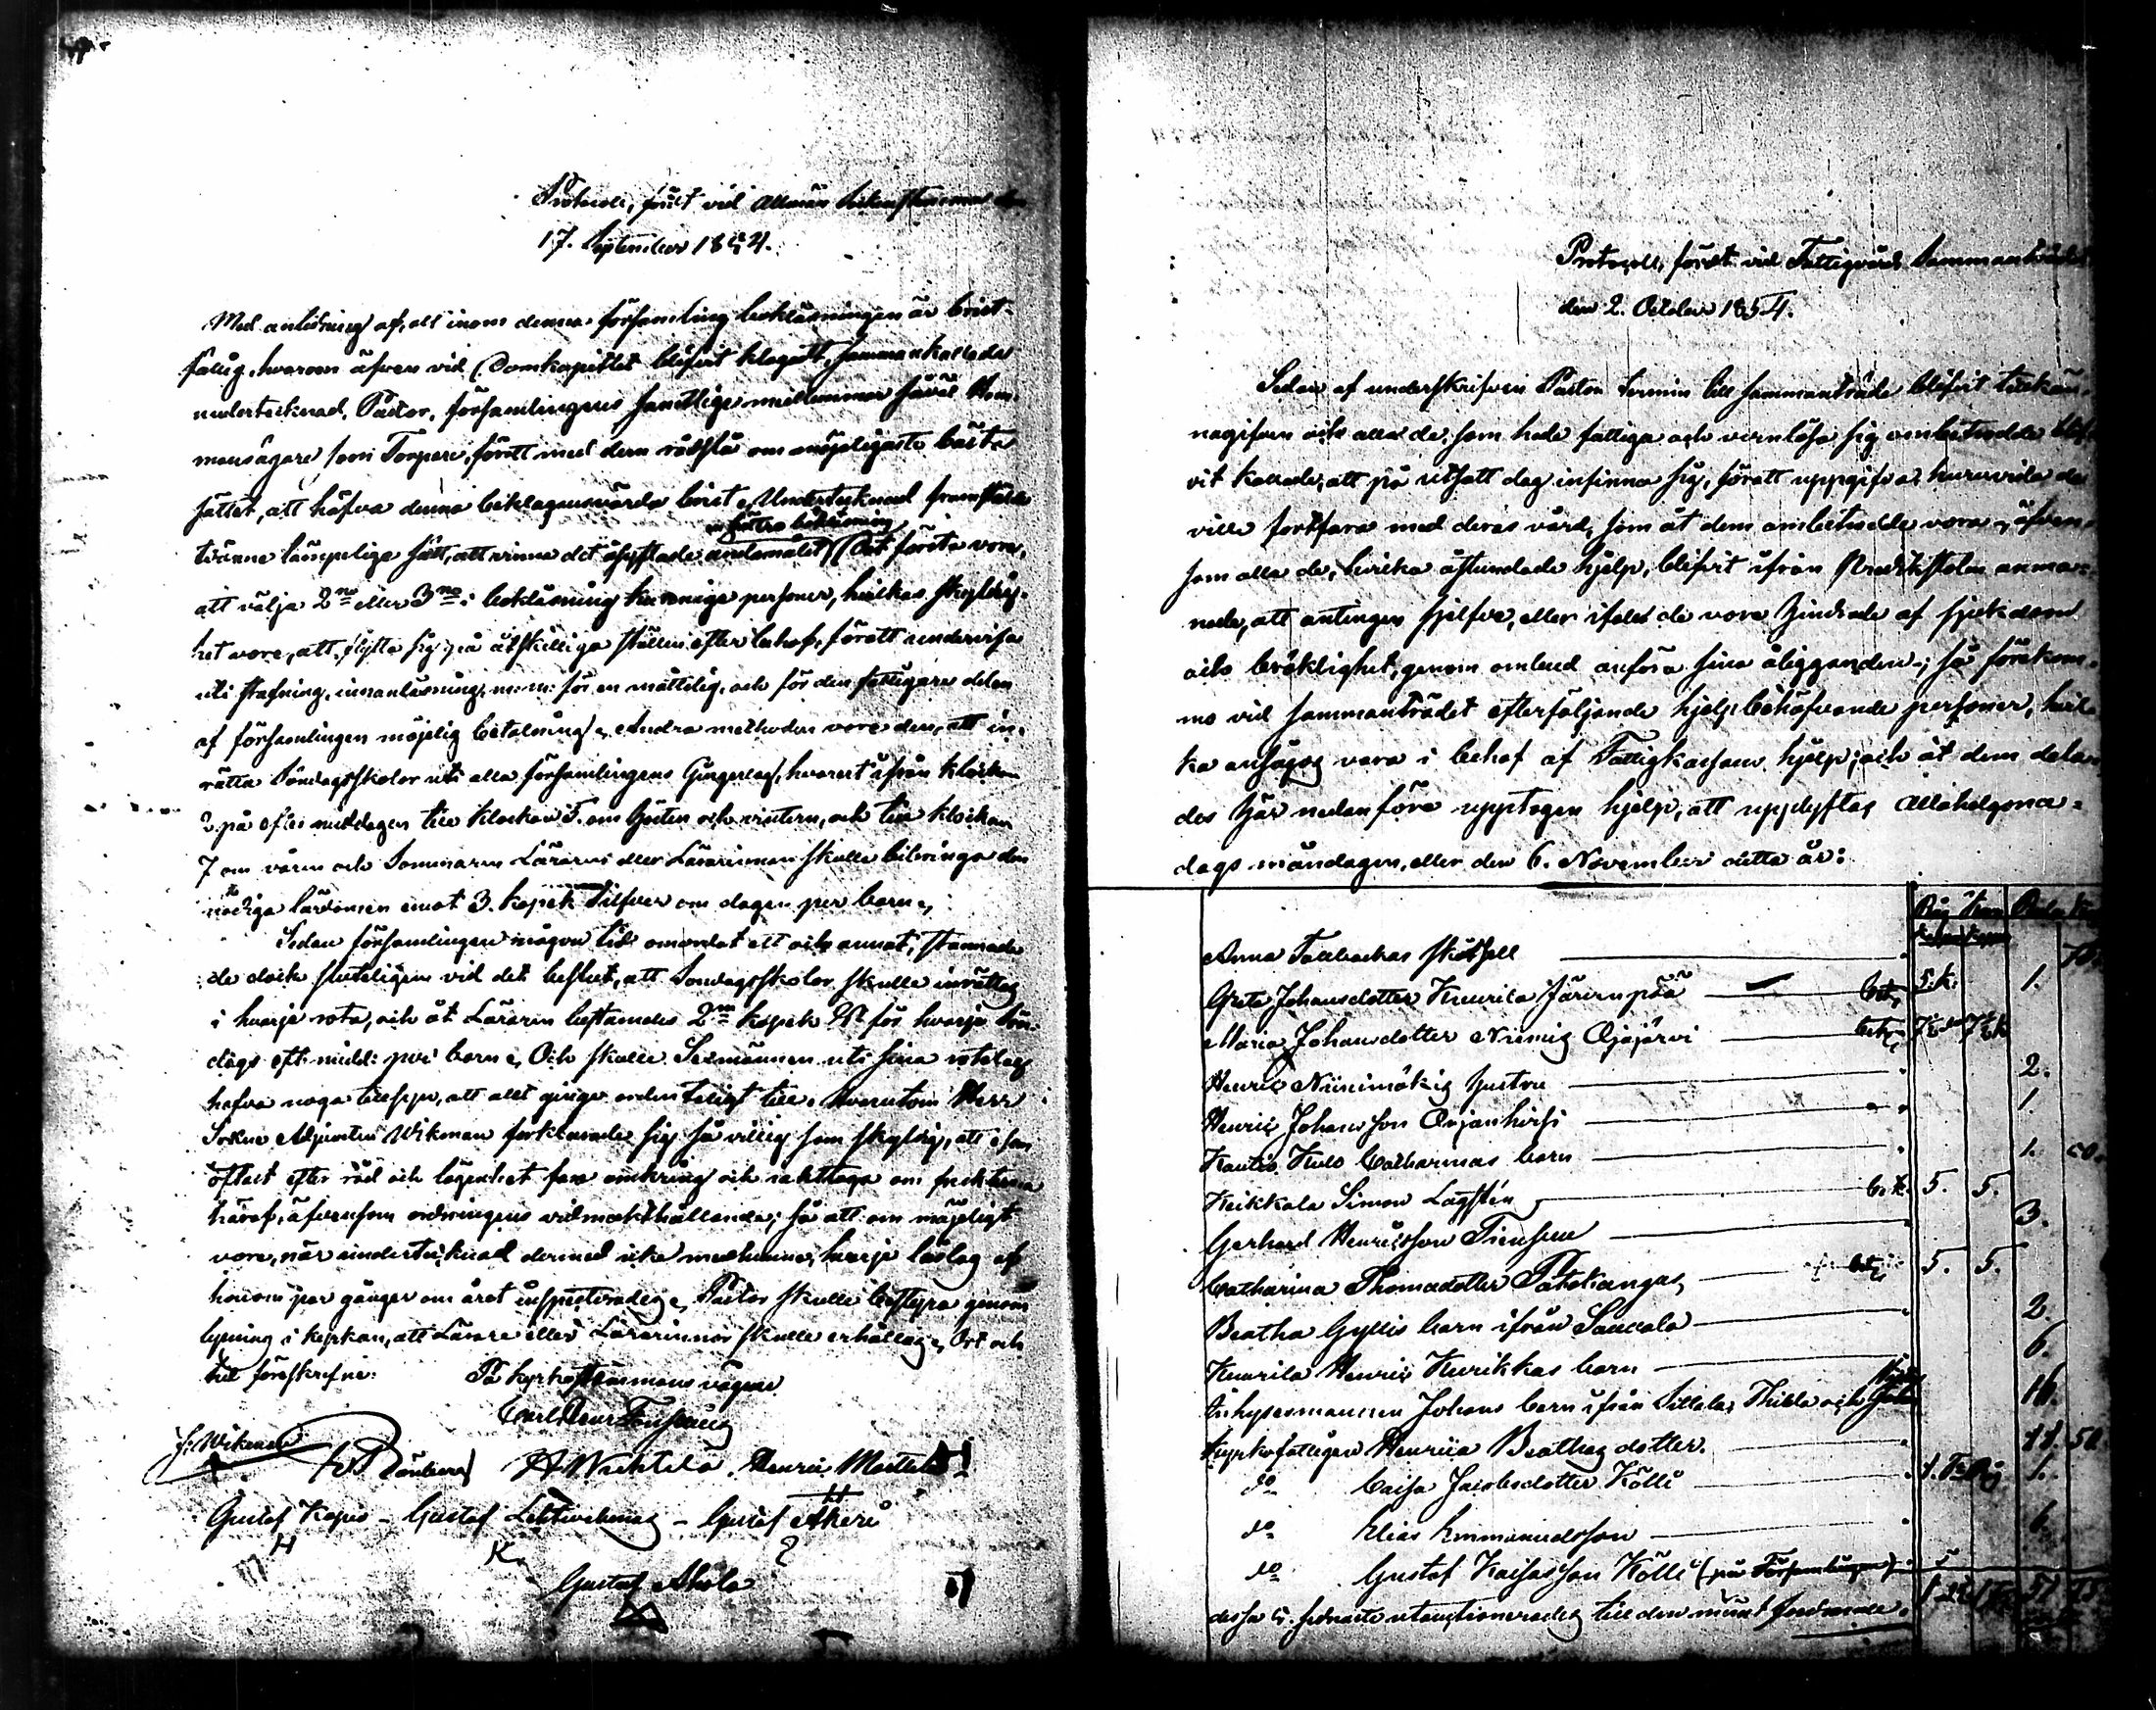 Protocoll, fördt vid Allmän Sockenstämma den
17. September 1854.
Med anledning af, att inom denna församling bokläsningen är brist-
fällig, hvarom äfven vid Domkapitlet blifvit klagadt, sammankallade
undertecknad, Pastor, församlingens samtlige medlemmar såväl Hem-
mansägare som Torpare, föratt med dem rådslå om möjeligaste bästa
sättet, att häfva denna beklagansvärda brist. Undertecknad framstälde
en bättre bokläsning
tvänne lämpeliga sätt, att vinna det åsyftade ändamålet (Det första vore,
att välja 2ne eller 3ne i bokläsning kunnige personer, hvilkas skyldig-
het vore, att flytta sig på åtskilliga ställen efter behof, föratt undervisa
uti stafning, innanläsning, m:m: för en måttelig, och för den fattigare delen
af församlingen möjelig betalning. Andra methoden vore den, att in-
rätta Söndagsskolor uti alla församlingens Gingerlag, hvarest ifrån klockan
2 på eftermiddagen till klockan 5. om hösten och vintern, och till klockan
7 om våren och Sommaren Läraren eller Lärarinnan skulle bibringa den
nödiga lärdomen emot 3. kopek Silfver om dagen per barn.
Sedan församlingen någon tid omordat ett och annat, stannade
de dock sluteligen vid det beslut, att Söndagsskolor skulle inrättas
i hvarje rota, och åt Läraren bestämdes 2ne kopek Sr för hvarje Sön-
dags eft.midd: per barn. Och skulle Sexmännen uti sina rotelag
hafva noga tillsyn, att allt ginge ordenteligt till. Hvarutom Herr
Sockne Adjuncten Wikman förklarade sig så villig som skyldig, att som
oftast efter råd och lägenhet fara omkring och iakttaga om frukterna
häraf, äfvensom ordningens vidmakthållande; så att om möjeligt
vore, när undertecknad dermed icke medhunne, hvarje läslag af
honom par gånger om året inspecterades. Pastor skulle bestyra genom
lysning i kyrkan, att Lärare eller Lärarinnor skulle erhållas. Ort och
tid föreskrefne:
På kyrkostämmans vägnar
J. Wikman
Henric Mattila
Gustaf Kopio - Gustaf - Gustaf Akeri
Gustaf Ahola
Protocoll, fördt vid Fattigvårds Sammanträdet
den 2. October 1854.
Sedan af underskrifven Pastor termin till sammanträde blifvit tillkän-
nagifven och alla de, som hade fattiga och vårnlösa sig ombetrodda blif-
vit kallade, att på utsatt dag infinna sig, föratt uppgifva, huruvida de
ville fortfara med deras vård, som åt dem ombetrodde voro, äfven-
som alla de, hvilka åstundade hjelp, blifvit ifrån Predikstolen anma-
nade, att antingen sjelfve, eller ifall de voro hindrade af sjukdom
och bräklighet, genom ombud anföra sina åligganden; så förekom-
mo vid sammanträdet efterföljande hjelp behöfvande personer, hvil-
ka ansågos vara i behof af Fattigkassans hjelp; och åt dem dela-
des här nedanföre upptagen hjelp, att upplyftas Allahelgona-
dags måndagen, eller den 6. November detta år:
Råg Korn
Anna Tallbackas skötsell
Greta Johansdotter Knurila Järvenpää 5.k. 1.
Maria Johansdotter Niemis Ojajärvi
Henric Niinimäkis hustru 2.
Henric Johansson 1.
Catharinas barn 1.
Heikkala Simon Lagsten 5. 5.
Gerhard Henricsson 3.
Catharina Thomædotter Patokangas 5. 5.
Beatha Gyllis barn ifrån Saukala 2.
Knurila Henric Knrikkas barn 6.
Inhysesmannen Johans barn ifrån Sillala, Hilda och 16.
Kyrkofattigen Henrica Beathas dotter. 11. 50
do Caisa Jacobsdotter Kölli 1.
do Elias Emmanuelsson 6.
do Gustaf Kaisasson Kölli (på Församlingen)
dessa 4. sednaste utauctionerades till den minst fordrande.